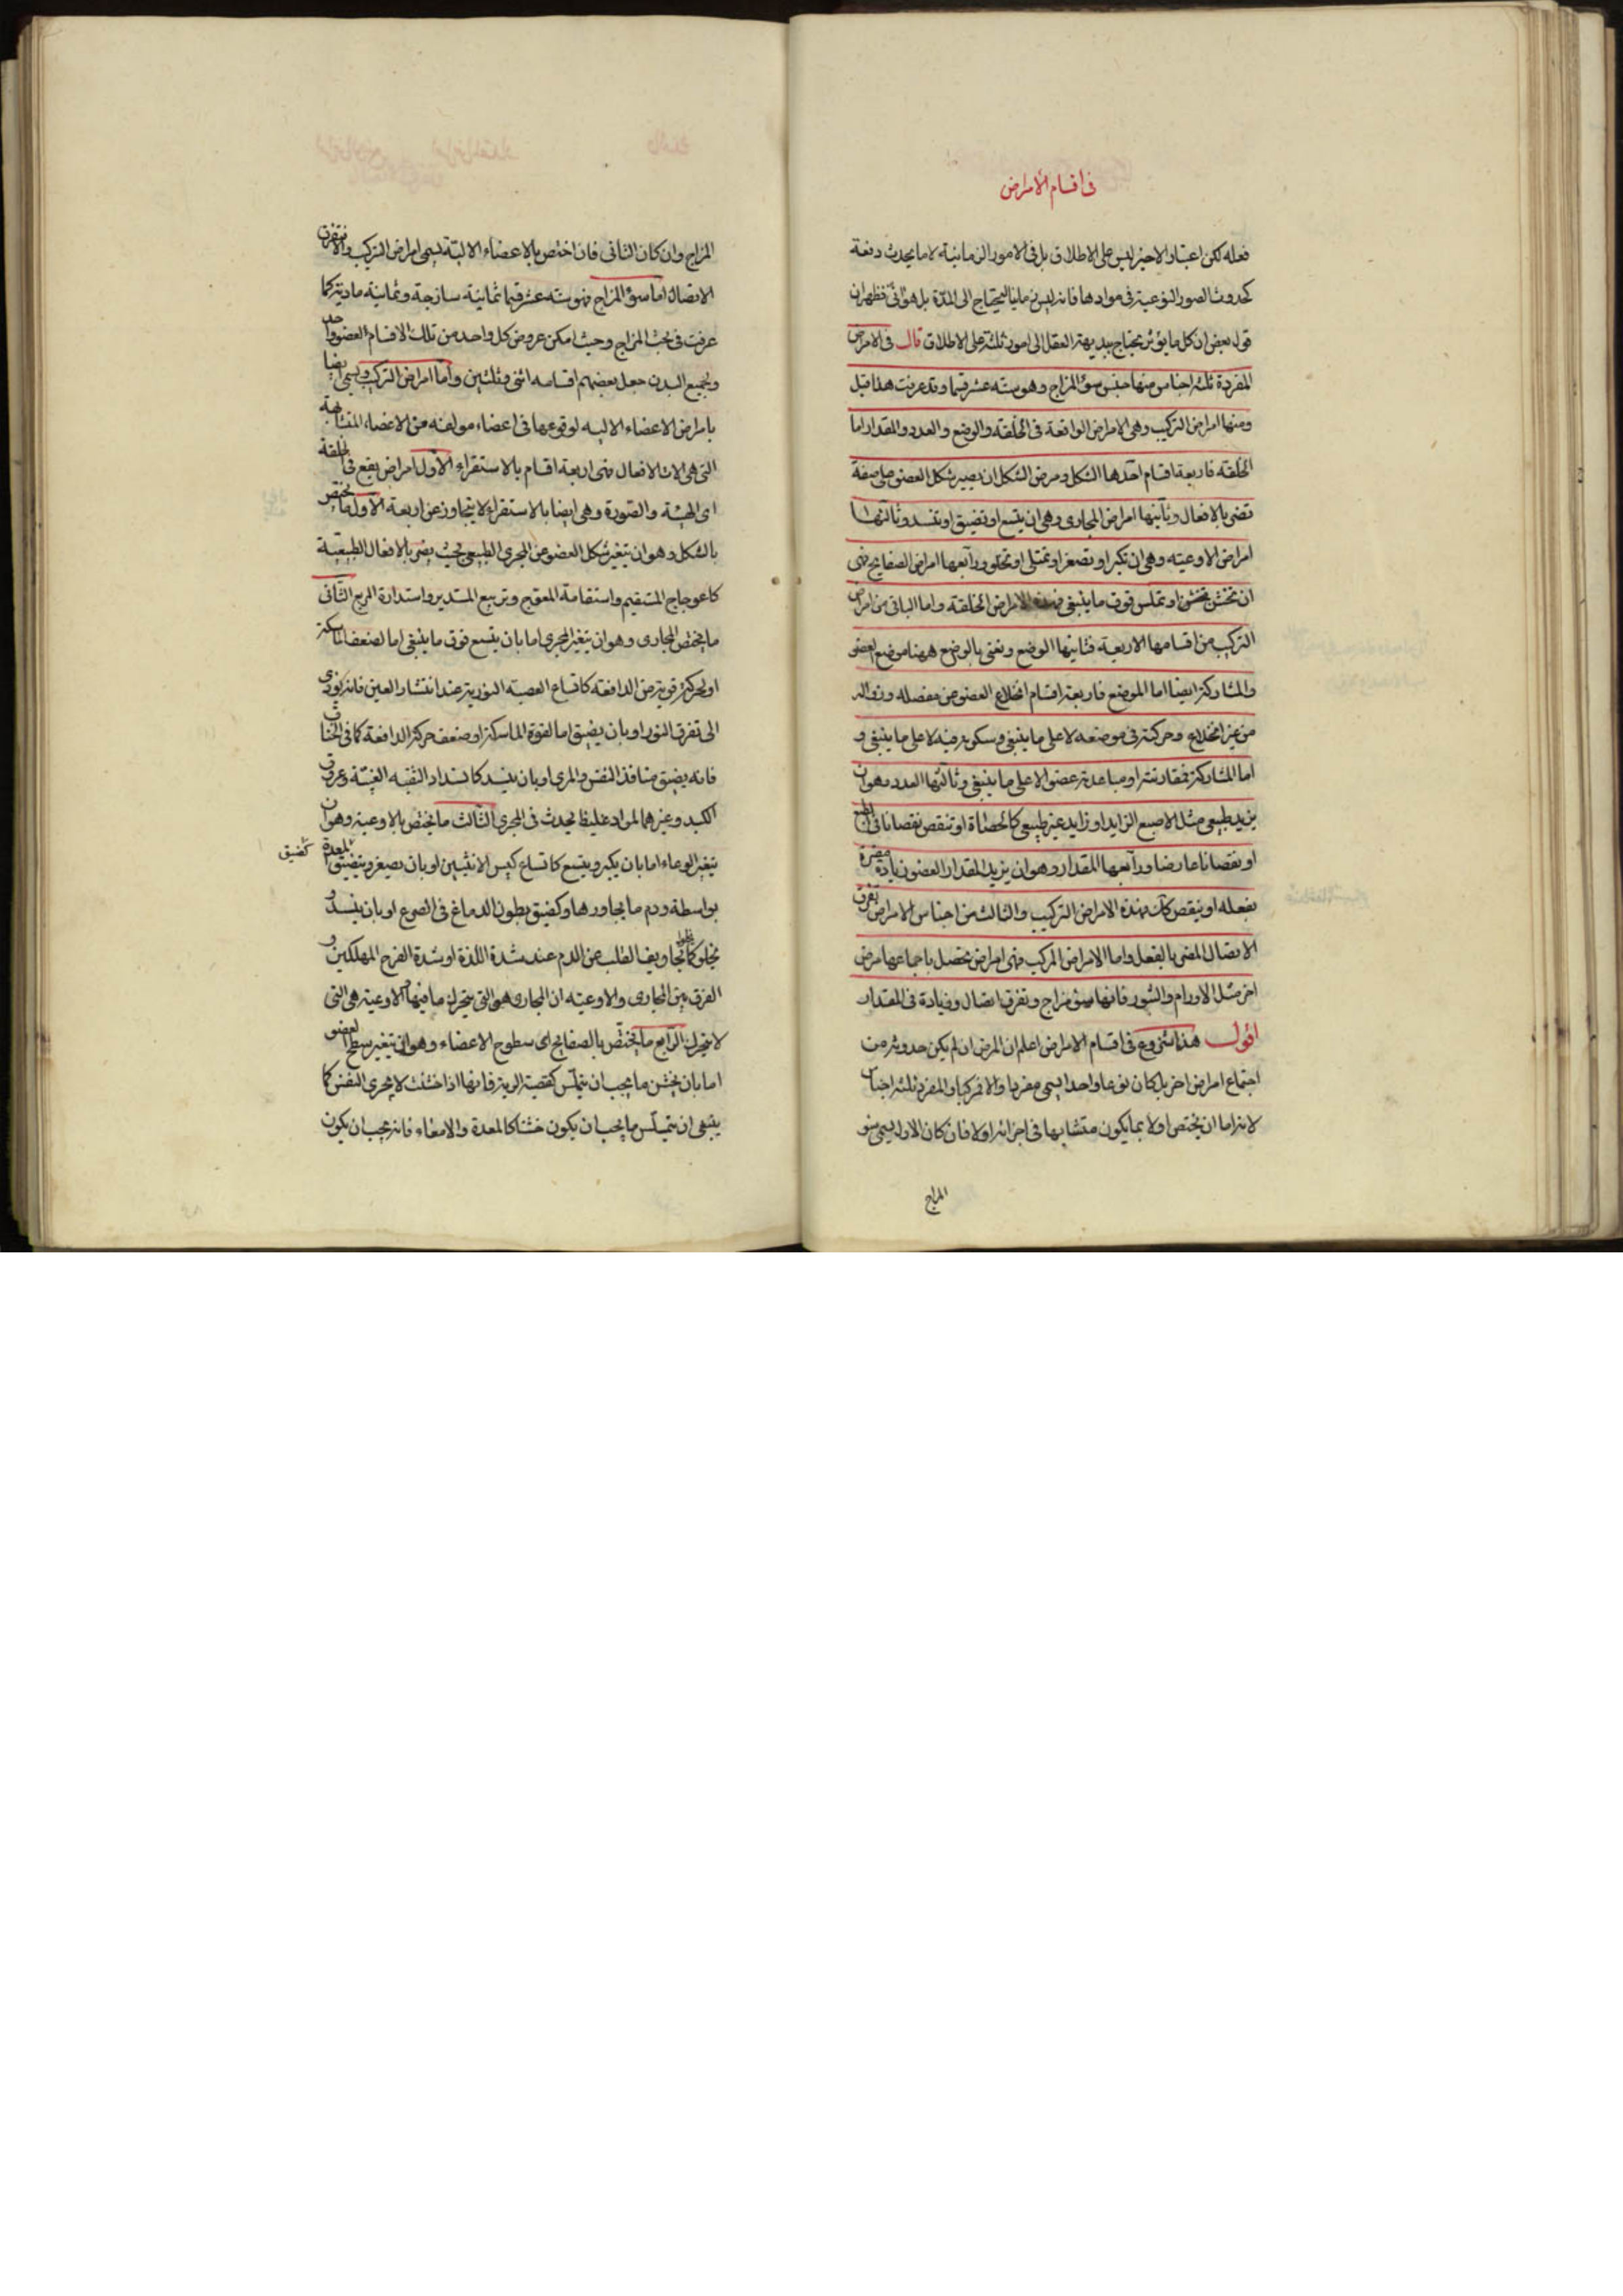 فى اقسام الامراض
فعله لكن اعتبار الاخير ليس على الاطلاق بل فى الامور الزمانية لا ما يحدث دفعة
كحدوث الصور النوعية فى موادها فانه ليس زمانيا ليحتاج الى المدة بل هو آنى فظهر ان
قول بعض ان كل ما يؤثر يحتاج ببديهة العقل الى امور ثلثة على الاطلاق قال فى الامراض
المفردة ثلثة اجناس منها جنس سوء المزاج وهو ستة عشر قسما وقد عرفت هذا قبل
ومنها امراض التركيب وهى الامراض الواقعة فى الخلقة والوضع والعدد والمقدار اما
الخلقة فاربعة اقسام احدها الشكل ومرض الشكل ان يصير شكل العضو على صفة
تضر بالافعال وثانيها امراض المجارى وهى ان يتسع او تضيق او تنسد وثالثها
امراض الاوعية وهى ان تكبر او تصغر او تمتلى او تخلو ورابعها امراض الصفايح فهى
ان تخشن او تملس فوق ما ينبغى فهذه الامراض الخلقة واما الباقى من امراض
التركيب من اقسامها الاربعة فثانيها الوضع ونعنى بالوضع ههنا موضع العضو
والمشاركة ايضا اما الموضع فاربعة اقسام انخلاع العضو من مفصله وزواله
من غير انخلاع وحركته فى موضعه لا على ما ينبغى وسكونه فيه لا على ما ينبغى و
اما المشاركة فمقارنته او مباعدته عضوا لا على ما ينبغى وثالثها العدد وهو ان
يزيد طبيعى مثل الاصبع الزايد او زايد غير طبيعى كالحصاة او تنقص نقصانا فى الطبع
او نقصانا عارضا ورابعها المقدار وهو ان يزيد المقدار العضو زيادة مضرة
بفعله او ينقص كذلك فهذه الامراض التركيب والثالث من اجناس الامراض تفرق
الاتصال المضر بالفعل واما الامراض المركب فهى امراض تحصل باجتماعها مرض
اخر مثل الاورام والبثور فانها سوء مزاج وتفرق اتصال وزيادة فى المقدار
اقول هذا شروع فى اقسام الامراض اعلم ان المرض ان لم يكن حدوثه من
اجتماع امراض اخر بل كان نوعا واحدا يسمى مفردا والا فمركبا والمفرد ثلثة اجناس
لانه اما ان يختص اولا بما يكون متشابها فى اجزائه اولا فان كان الاول يسمى سوء
المزاج
المزاج وان كان الثانى فان اختص بالاعضاء الالية يسمى امراض التركيب والا فتفرق
الاتصال اما سوء المزاج فهو ستة عشر قسما ثمانية ساذجة وثمانية مادية كما
عرفت فى بحث المزاج وحيث امكن عروض كل واحد من تلك الاقسام العضو واحد
ولجميع البدن جعل بعضهم اقسامه اثنى وثلثين واما امراض التركيب ويسمى ايضا
بامراض الاعضاء الالية لوقوعها فى اعضاء مولفة من الاعضاء المتشابهة
التى هى الات الافعال فهى اربعة اقسام بالاستقراء الاول امراض يقع فى الخلقة
اى الهيئة والصورة وهى ايضا بالاستقراء لا يتجاوز عن اربعة الاول ما يختص
بالشكل وهو ان يتغير شكل العضو عن المجرى الطبيعى بحيث يضر بالافعال الطبيعية
كاعوجاج المستقيم واستقامة المعوج وتربيع المستدير واستدارة المربع الثانى
ما يختص المجارى وهو ان يتغير المجرى اما بان يتسع فوق ما ينبغى اما لضعف الماسكة
او لحركة قوية من الدافعة كاتساع العصبة النورية عند انتشار العين فانه يؤدى
الى تفرق النور او بان يضيق اما لقوة الماسكة او ضعف حركة الدافعة كما فى الخناق
فانه يضيق منافذ النفس والمرى او بان ينسد كانسداد الثقبة العنبية وعروق
الكبد وغيرهما لمواد غليظة يحدث فى المجرى الثالث ما يختص بالاوعية وهو ان
يتغير الوعاء اما بان يكبر ويتسع كاتساع كيس الانثيين او بان يصغر ويتضيق كضيق المعدة
بواسطة ورم ما يجاورها وكضيق بطون الدماغ فى الصرع او بان ينسد او
يخلو كخلو تجاويف القلب عن الدم عند شدة اللذة او شدة الفرح المهلكين و
الفرق بين المجارى والاوعية ان المجارى هو التى يتحرك ما فيها والاوعية هى التى
لا يتحرك الرابع ما يختص بالصفايح اى سطوح الاعضاء وهو ان يتغير سطح العضو
اما بان يخشن ما يجب ان يتملس كقصبة الرية فانها اذا خشنت لا يجرى النفس كما
ينبغى ان يتملس ما يجب ان يكون خشنا كالمعدة والامعاء فانه يجب ان يكون